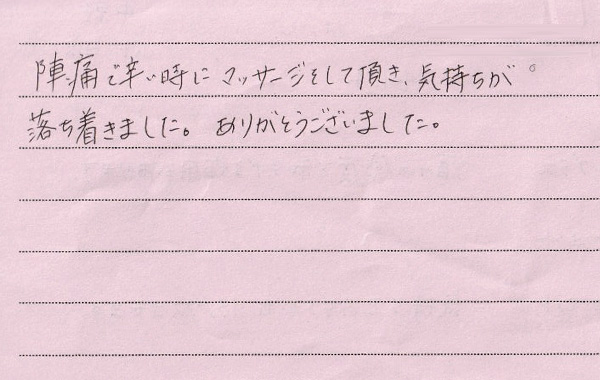 陣痛で辛い時にマッサージをして頂き、気持ちが
落ち着きました。ありがとうございました。